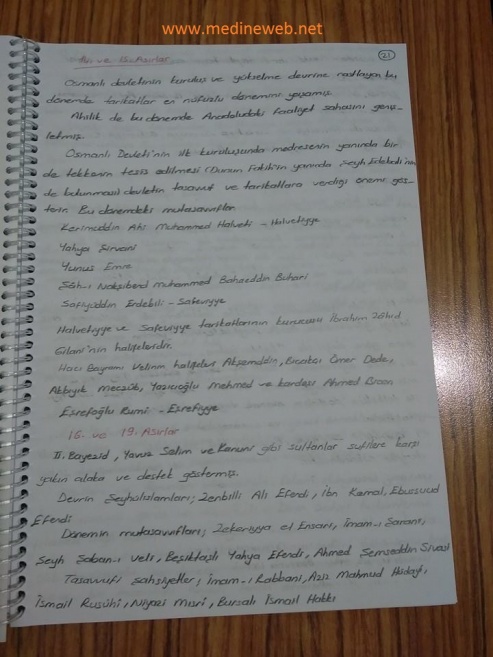 www.medineweb.net
21
14. ve 15. Asırlar
Osmanlı devletinin kuruluş ve yükselme devrine rastlayan bu
dönemde tarikatlar en nüfuzlu dönemini yaşamış.
Ahilik de bu dönemde Anadoludaki faaliyet sahasını geniş-
letmiş.
Osmanlı Devleti'nin ilk kuruluşunda medresenin yanında bir
de tekkenin tesis edilmesi (Dursun Fakih'in yanında Şeyh Edebali'nin
de bulunması) devletin tasavvuf ve tarikatlara verdiği önemi gös-
terir. Bu dönemdeki mutasavvıflar
Kerimuddin Ahi Muhammed Halveti - Halvetiyye
Yahya Şirvani
Yunus Emre
Şah-ı Nakşibend Muhammed Bahaeddin Buhari
Safiyüddin Erdebili - Safeviyye
Halvetiyye ve Safeviyye tarikatlarının kurucusu İbrahim Zahid
Gilani'nin halifeleridir.
Hacı Bayramı Velinin halifeleri Akşemddin, Bıcakcı Ömer Dede,
Akbıyık Meczûb, Yazıcıoğlu Mehmed ve kardeşi Ahmed Bican
Eşrefoğlu Rumi - Eşrefiyye
16. ve 19. Asırlar
II. Bayezid, Yavuz Selim ve Kanuni gibi sultanlar sufilere karşı
yakın alaka ve destek göstermiş.
Devrin Şeyhülislamları; Zenbilli Ali Efendi, İbn Kemal, Ebussuud
Efendi
Dönemin mutasavvıfları; Zekeriyya el Ensari, İmam-ı Şarani,
Şeyh Şaban-ı Veli, Beşiktaşlı Yahya Efendi, Ahmed Şemseddin Sivasi
Tasavvufi şahsiyetler; İmam-ı Rabbani, Aziz Mahmud Hüdayi,
İsmail Rusûhi, Niyazi Mısri, Bursalı İsmail Hakkı